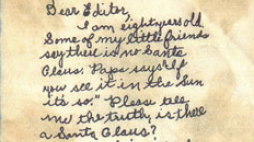 Dear Editor,
I am eight years old
Some of my little friends
say there is no Santa
Claus. Papa says "If
you see it in the Sun
it's so." Please tell
me the truth, is there
a Santa Claus?